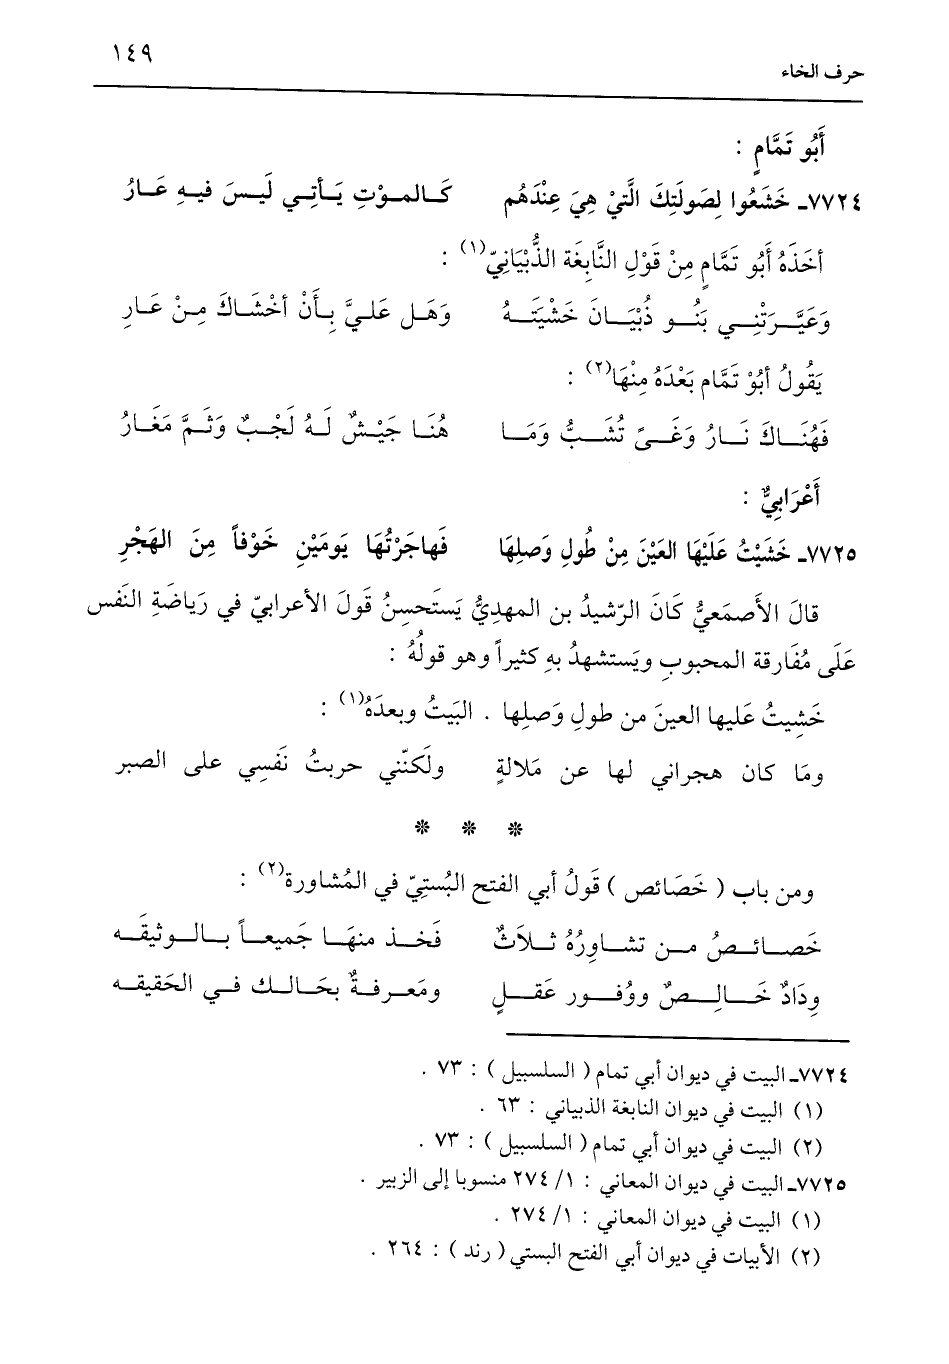 حرف الخاء ١٤٩
أَبُو تَمَّامٍ :
٧٧٢٤ـ خَشَعُوا لِصَولَتِكَ الَّتِيْ هِيَ عِنْدَهُم كَـالمـوْتِ يَـأتِـي لَيـسَ فيـهِ عَـارُ
أخَذَهُ أَبُو تَمَّامٍ مِنْ قَوْلِ النَّابِغَة الذُّبْيَانِيّ(١) :
وَعَيَّـرَتْنِـي بَنُـو ذُبْيَـانَ خَشْيَتَـهُ وَهَـل عَلـيَّ بِـأَنْ أخْشَاكَ مِـنْ عَـارِ
يَقُولُ أبُوْ تَمَّام بَعْدَهُ مِنْهَا(٢) :
فَهُنَـاكَ نَـارُ وَغَـىً تُشَـبُّ وَمَـا هُنَـا جَيْـشٌ لَـهُ لَجْـبٌ وَثَـمَّ مَغَـارُ
أَعْرَابِيٌّ :
٧٧٢٥ـ خَشَيْتُ عَلَيْهَا العَيْنَ مِنْ طُولِ وَصلِهَا فَهاجَرْتُهَا يَومَيْنِ خَوْفاً مِنَ الهَجْرِ
قالَ الأَصمَعيُّ كَانَ الرّشيدُ بن المهديُّ يَستَحسِنُ قَولَ الأعرابيّ في رَياضَةِ النَفس
عَلَى مُفَارقة المحبوبِ ويَستشهدُ بهِ كثيراً وهو قولُهُ :
خَشِيتُ عَليها العينَ من طولِ وَصلِها . البَيتُ وبعدَهُ(١) :
ومَا كان هجراني لها عن مَلالةٍ ولَكنّني حربتُ نَفَسِي على الصبر
* * *
ومن باب ( خَصَائص ) قَولُ أبي الفتح البُستِيّ في المُشاورة(٢) :
خَصـائـصُ مـن تشـاورُهُ ثـلاَثٌ فَخـذ منهَـا جَميعـاً بـالـوثيقَـه
وِدَادٌ خَـالِـصٌ ووُفـور عَقـلٍ ومَعـرفـةٌ بحَـالـك فـي الحَقيقـه
٧٧٢٤ـ البيت في ديوان أبي تمام ( السلسبيل ) : ٧٣ .
(١) البيت في ديوان النابغة الذبياني : ٦٣ .
(٢) البيت في ديوان أبي تمام ( السلسبيل ) : ٧٣ .
٧٧٢٥ـ البيت في ديوان المعاني : ١/ ٢٧٤ منسوبا إلى الزبير .
(١) البيت في ديوان المعاني : ١/ ٢٧٤ .
(٢) الأبيات في ديوان أبي الفتح البستي ( رند ) : ٢٦٤ .